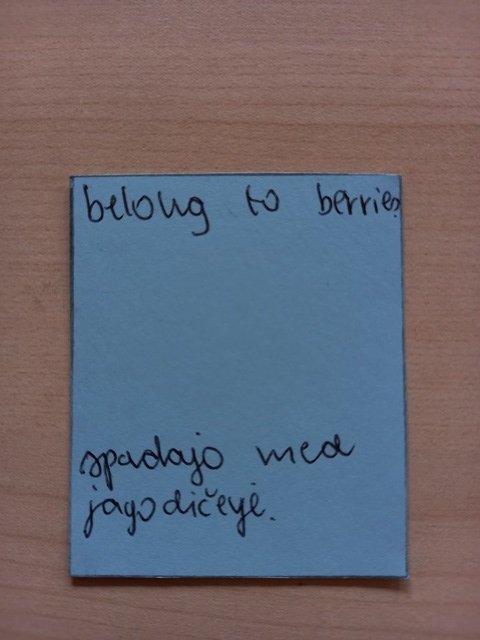 belong to berries
spadajo med
jagodičevje.